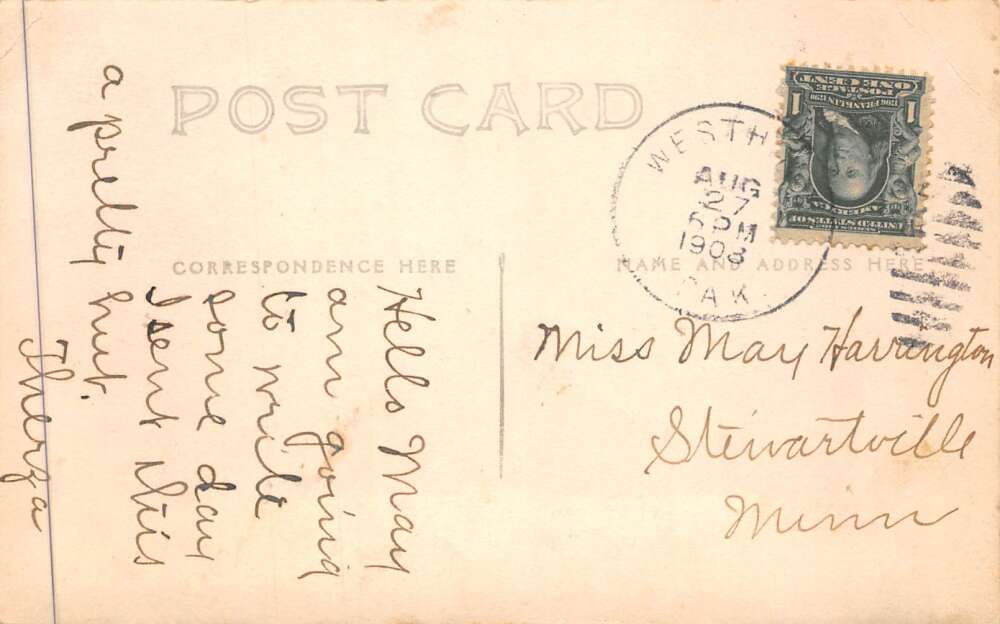 POST CARD
CORRESPONDENCE HERE
NAME AND ADDRESS HERE
WESTH
AUG
27
PM
1908
DAK.
POSTAGE
ONE CENT
1 1
1706 FRANKLIN 1790
UNITED STATES OF
AMERICA
Miss May Harrington
Stewartville
Minn
Hello May
am going
to write
some day
I sent this
a pretty hut.
Therza